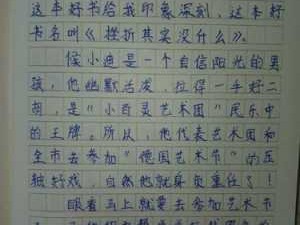 这本好书给我印象深刻，这本好
书名叫《挫折其实没什么》。
侯小迪是一个自信阳光的男
孩，他幽默活泼，拉得一手好二
胡，是"小百灵艺术团"民乐中
的王牌。所以，他代表艺术团和
全市去参加"德国艺术节"的压
轴好戏，自然他就身负重任了！
眼看马上就要去参加艺术节